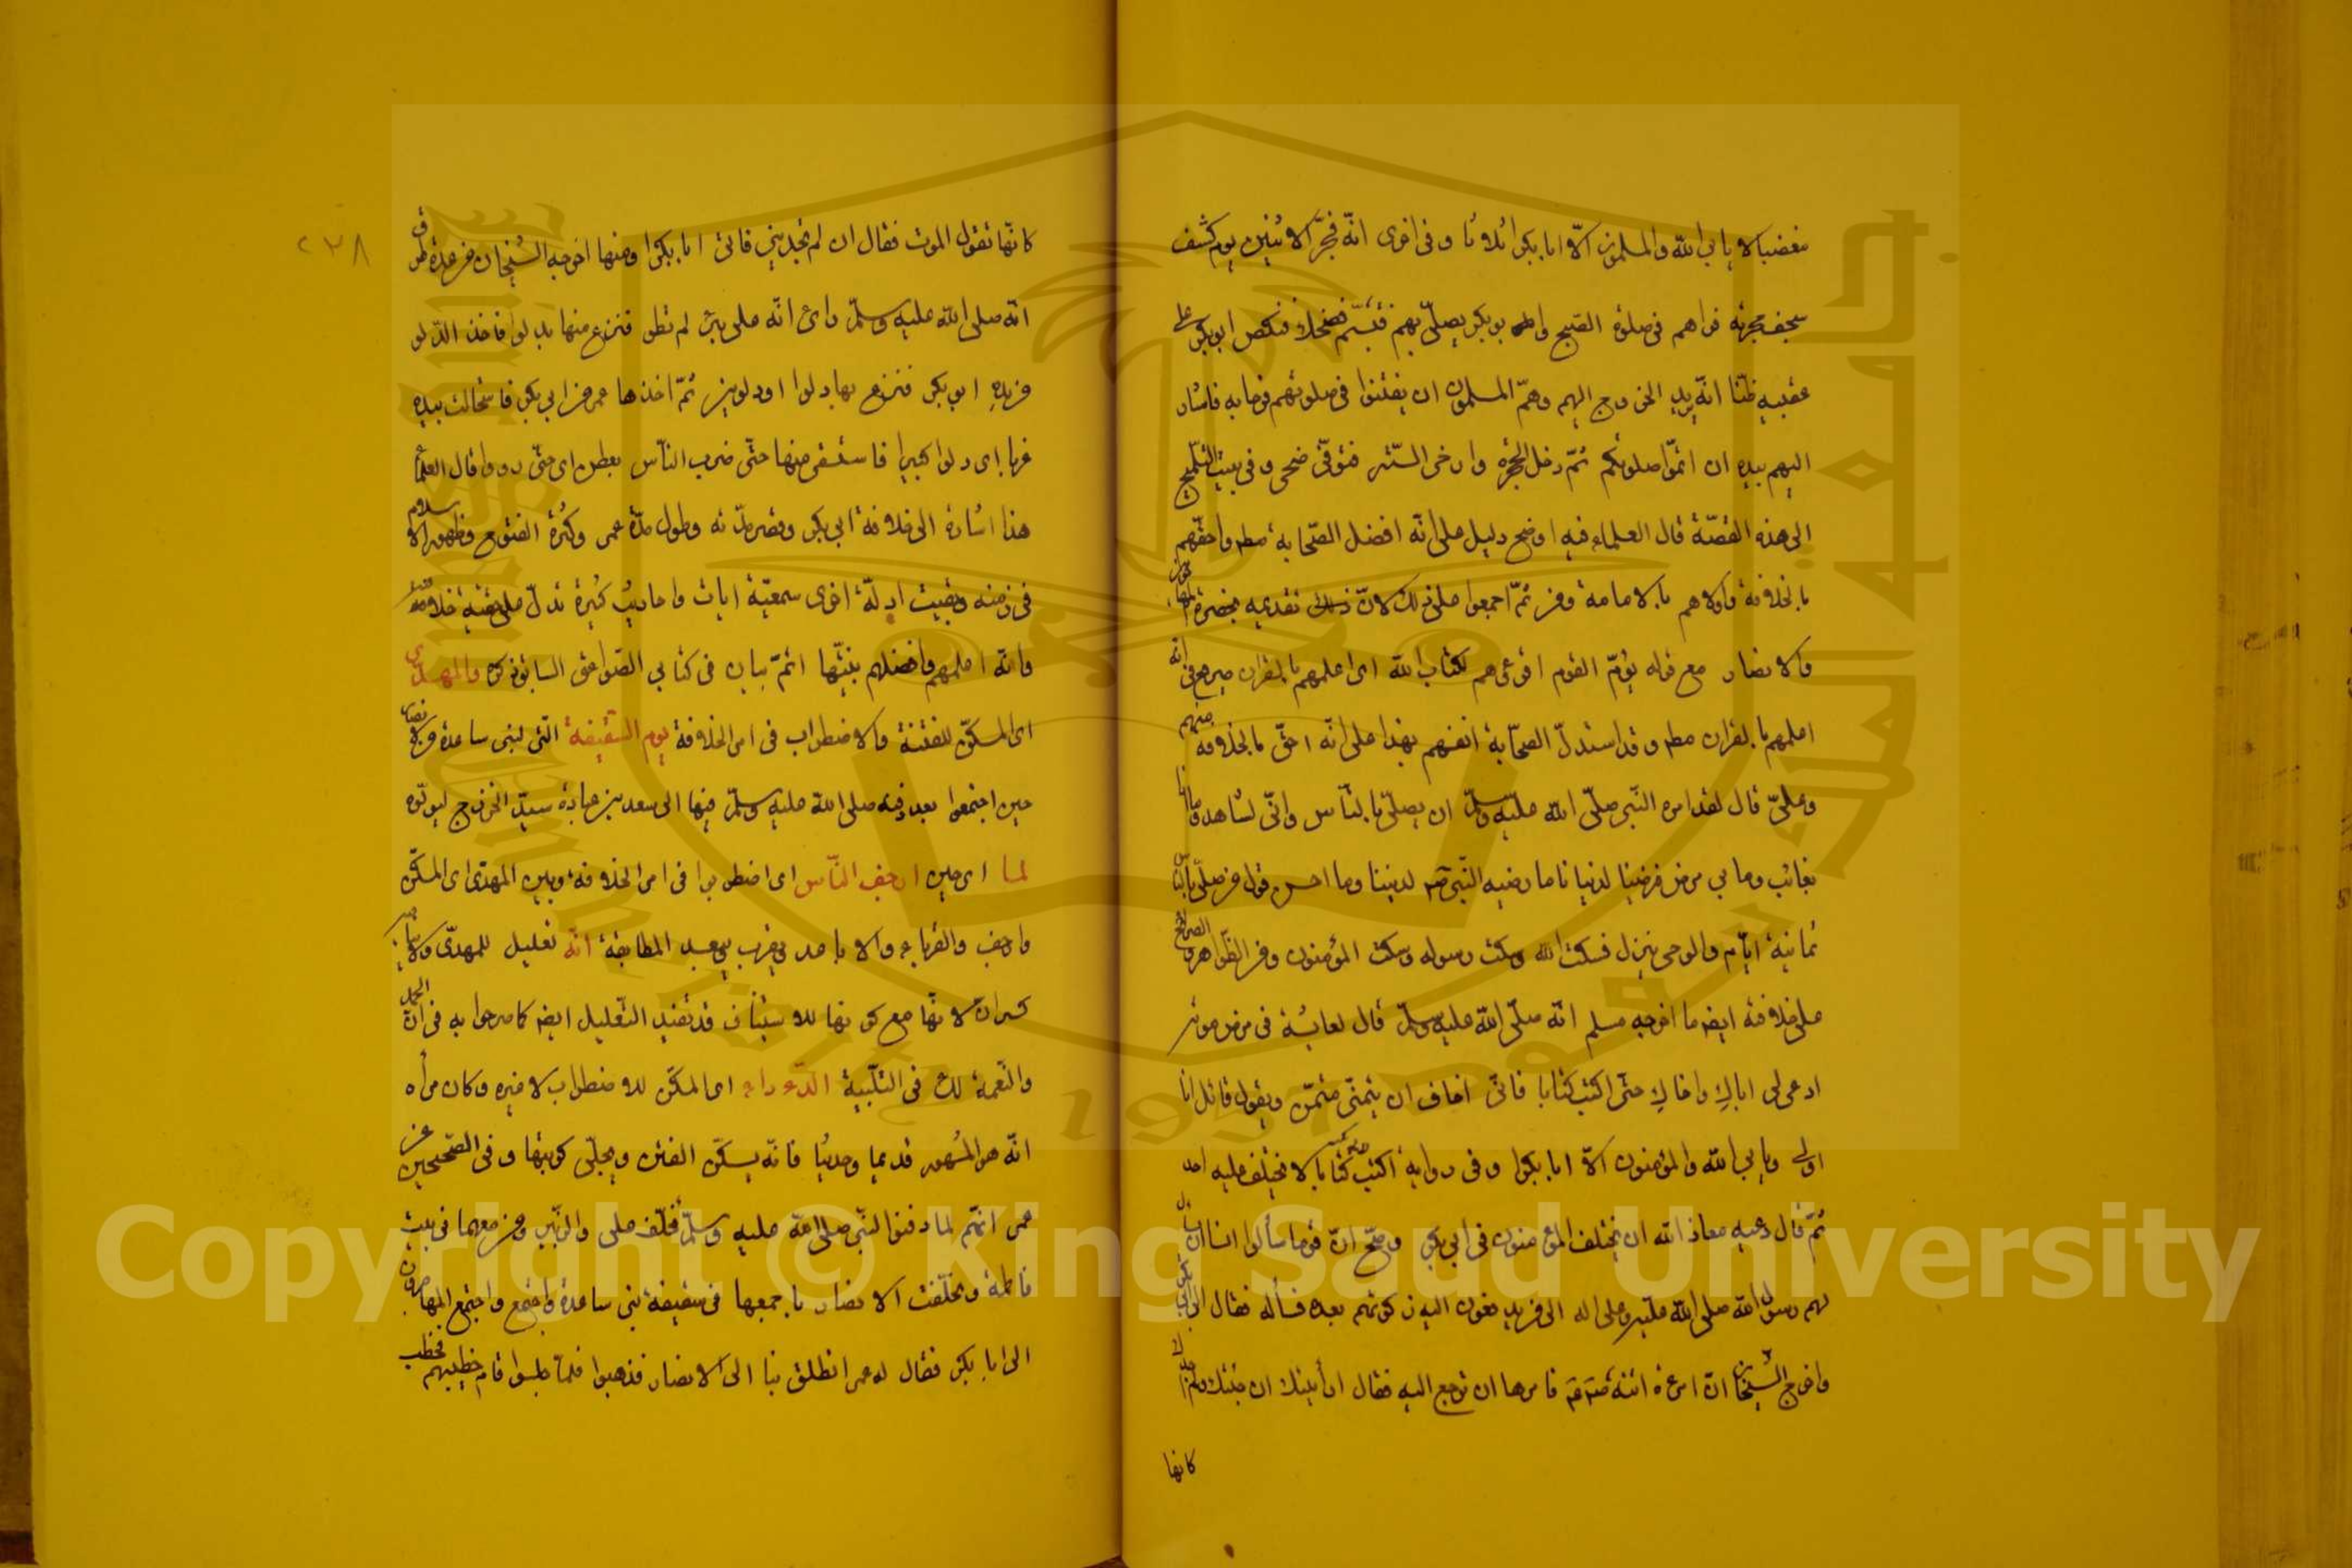 مغضبا لا يابى الله والمسلمون الّا ابا بكر ثلاثا وفى اخرى انّه فجر الاثنين يوم كشف
سجف حجرته فراهم فى صلوة الصبح وابو بكر يصلّى بهم فتبسّم فضحك فنكص ابو بكر على
عقبيه ظنّا انّه يريد الخروج اليهم وهمّ المسلمون ان يفتتنوا فى صلوتهم فرحا به فاشار
اليهم بيده ان اتمّوا صلوتكم ثمّ دخل الحجرة وارخى السّتر فتوفّى ضحى وفى بيت التلميح
الى هذه القصّة قال العلماء فيه اوضح دليل على انّه افضل الصّحابة مط واحقّهم
بالخلافة واولاهم بالامامة ومن ثمّ اجمعوا على ذلك لانّ تقديمه بحضرة
والانصار مع قوله يؤمّ القوم اقرءهم لكتاب الله اى اعلمهم بالقران صريح فى انه
اعلمهم بالقران مط وقد استدلّ الصّحابة انفسهم بهذا على انّه احقّ بالخلافة منهم
وعلىّ قال لقد امر النّبى صلّى الله عليه وسلّم ان يصلّى بالنّاس وانّى لشاهد وما انا
بغائب وما بى مرض فرضينا لدنيانا ما رضيه النّبى لديننا وما احسن قول من صلّى بالنّاس
ثمانية ايّام والوحى ينزل فسكت الله وسكت رسوله وسكت المؤمنون ومن الظّواهر
على خلافة ايضا ما اخرجه مسلم انّه صلّى الله عليه وسلّم قال لعائشة فى مرض موته
ادعى لى اباك واخاك حتّى اكتب كتابا فانّى اخاف ان يتمنّى متمنّ ويقول قائل انا
اولى ويابى الله والمؤمنون الّا ابا بكر وفى رواية اكتب كتابا لا يختلف عليه احد
ثمّ قال دعيه معاذ الله ان يختلف المؤمنون فى ابى بكر وصحّ انّ قوما سألوا انسا ان يسأل
لهم رسول الله صلى الله عليه وعلى اله الى من يدفعون اليه زكوتهم بعده فسأله فقال الى ابى بكر
واخرج الشّيخان انّ امرءة اتته فامرها ان ترجع اليه فقال ارأيتك ان جئتك ولم اجدك
كانها
٢٣٨
كانّها تقول الموت فقال ان لم تجدينى فاتى ابا بكر ومنها اخرجه الشيخان من عدة طرق
انّه صلى الله عليه وسلّم راى انّه على بئر لم تطو فنزع منها بدلو فاخذ الدّلو
من يده ابو بكر فنزع بها دلوا او دلوين ثمّ اخذها عمر من ابى بكر فاستحالت بيده
غربا اى دلوا كبيرا فاستسقى منها حتّى ضرب النّاس بعطن اى حتّى رووا قال العلماء
هذا اشارة الى خلافة ابى بكر وقصر مدّته وطول مدّة عمر وكثرة الفتوح وظهور الاسلام
فى زمنه وبقيت ادلّة اخرى سمعيّة ايات واحاديث كثيرة تدلّ على حقية خلافته
وانّه اعلمهم وافضلهم بيّنتها اتمّ بيان فى كتابى الصّواعق السابق ذكره والمهدى
اى المسكّن للفتنة والاضطراب فى امر الخلافة يوم السّقيفة الّتى لبنى ساعدة من الانصار
حين اجتمعوا بعد دفنه صلى الله عليه وسلّم فيها الى سعد بن عبادة سيّد الخزرج ليولّوه
لما اى حين ارجف النّاس اى اضطربوا فى امر الخلافة وبين المهدى اى المسكّن
وارجف والقرباء والاباعد المطابقة انّه تعليل للمهدّى
كسر انّ لانّها مع كونها للاستيناف قد تفيد التّعليل ايضا كما صرحوا به فى انّ الحمد
والنّعمة لك فى التّلبية الدّءداء اى المسكّن للاضطراب لا غيره وكان مرأه
انّه هو المشهور قديما وحديثا فانّه يسكّن الفتن ويجلّى كربتها وفى الصّحيحين عن
عمر انّهم لما دفنوا النّبى صلى الله عليه وسلّم تخلّف على والزّبير ومن معهما فى بيت
فاطمة وتخلّفت الانصار باجمعها فى سقيفة بنى ساعدة واجتمع المهاجرون
الى ابا بكر فقال له عمر انطلق بنا الى الانصار فذهبوا فلمّا جلسوا قام خطيبهم فخطب
Copyright © King Saud University
1957